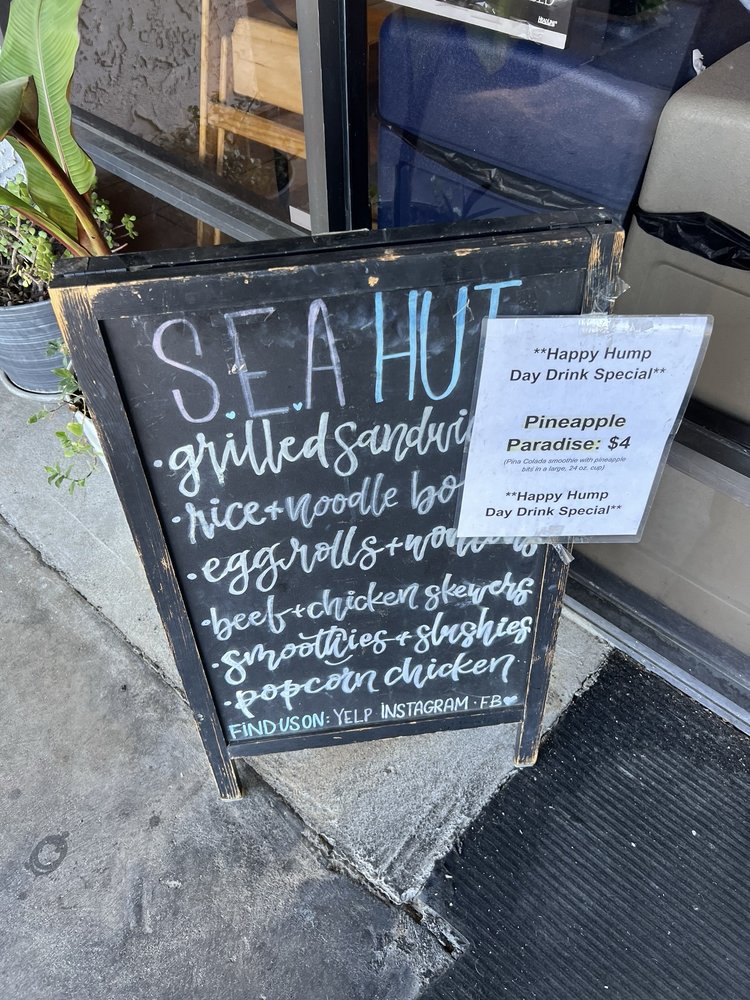 SEA HUT
·grilled sandwi
·rice+noodle bo
·egg rolls+wontons
·beef+chicken skewers
·smoothies+slushies
·popcorn chicken
FIND US ON: YELP INSTAGRAM·FB♥
**Happy Hump
Day Drink Special**
Pineapple
Paradise: $4
(Pina Colada smoothie with pineapple
bits in a large, 24 oz. cup)
**Happy Hump
Day Drink Special**